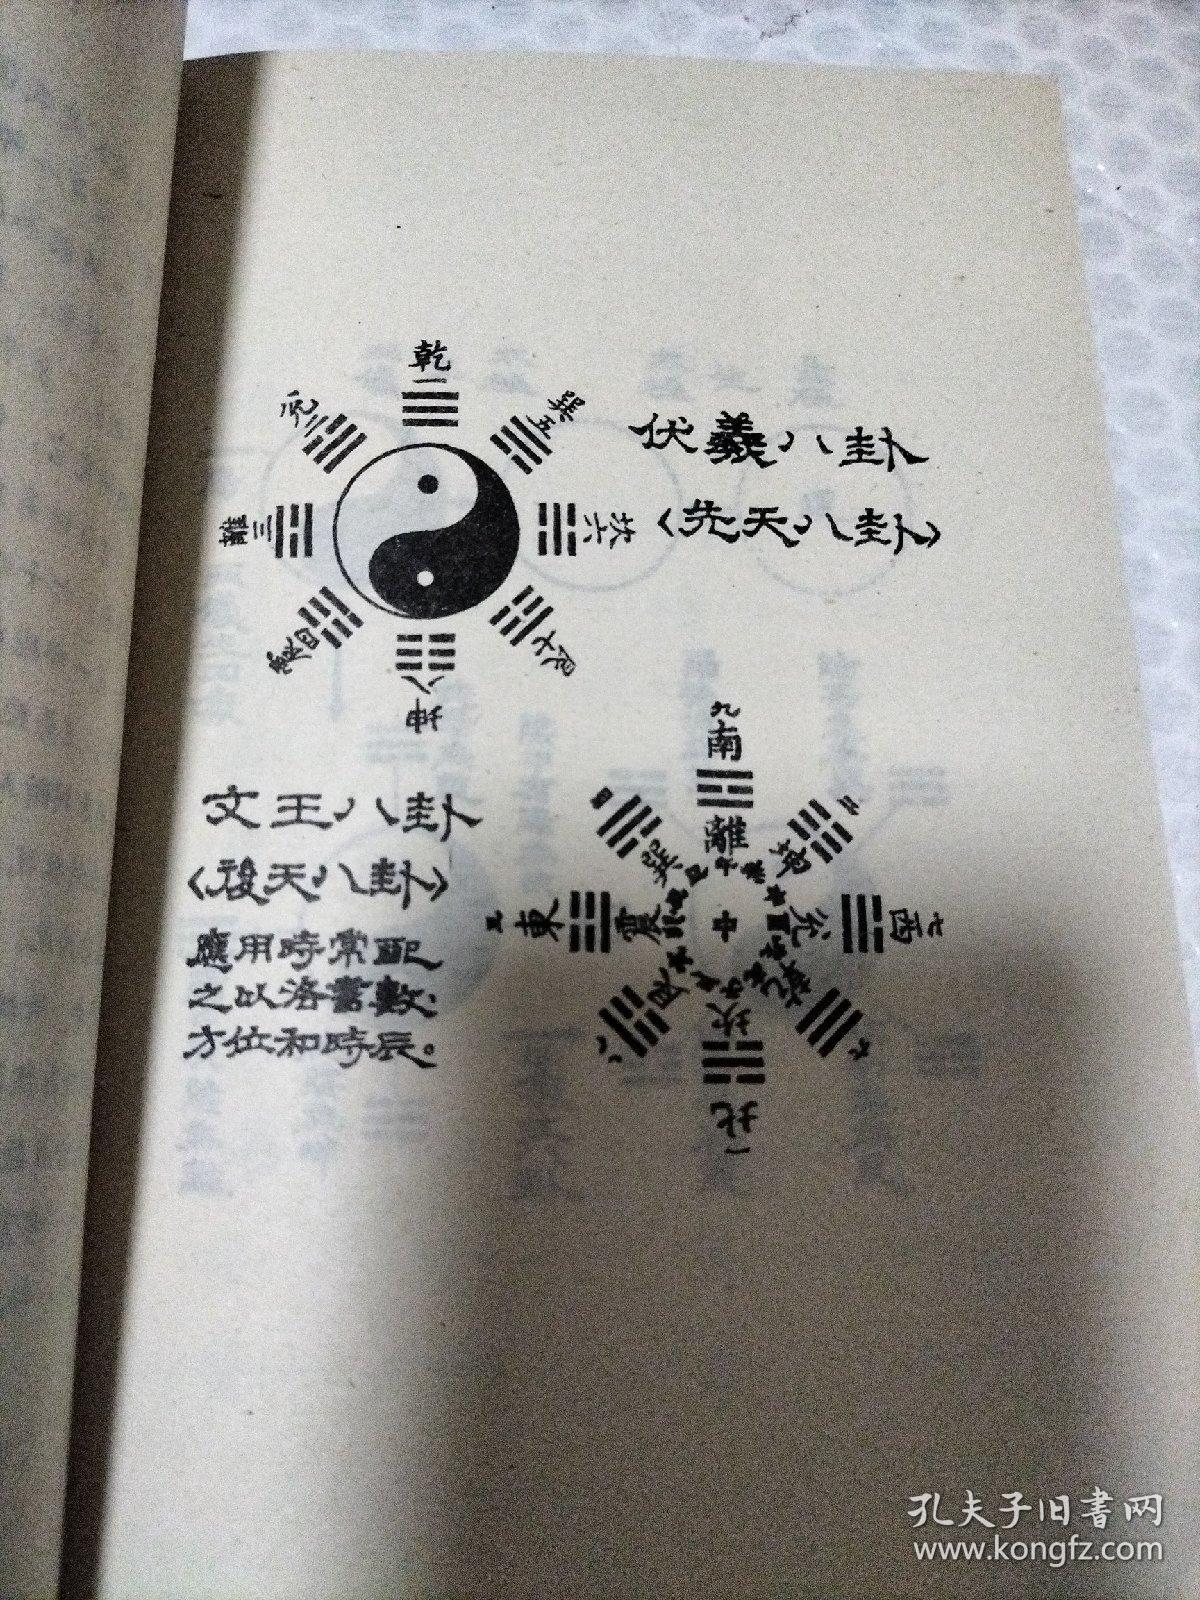 乾
一
兌二
巽五
離三
坎六
震四
艮七
八
坤
伏羲八卦
〈先天八卦〉
文王八卦
〈後天八卦〉
應用時常配
之以洛書數：
方位和時辰。
九
南
離
四
巽
坤
二
三
東
震
中
兌
西
七
艮
坎
乾
八
六
北
一
孔夫子旧書网
www.kongfz.com